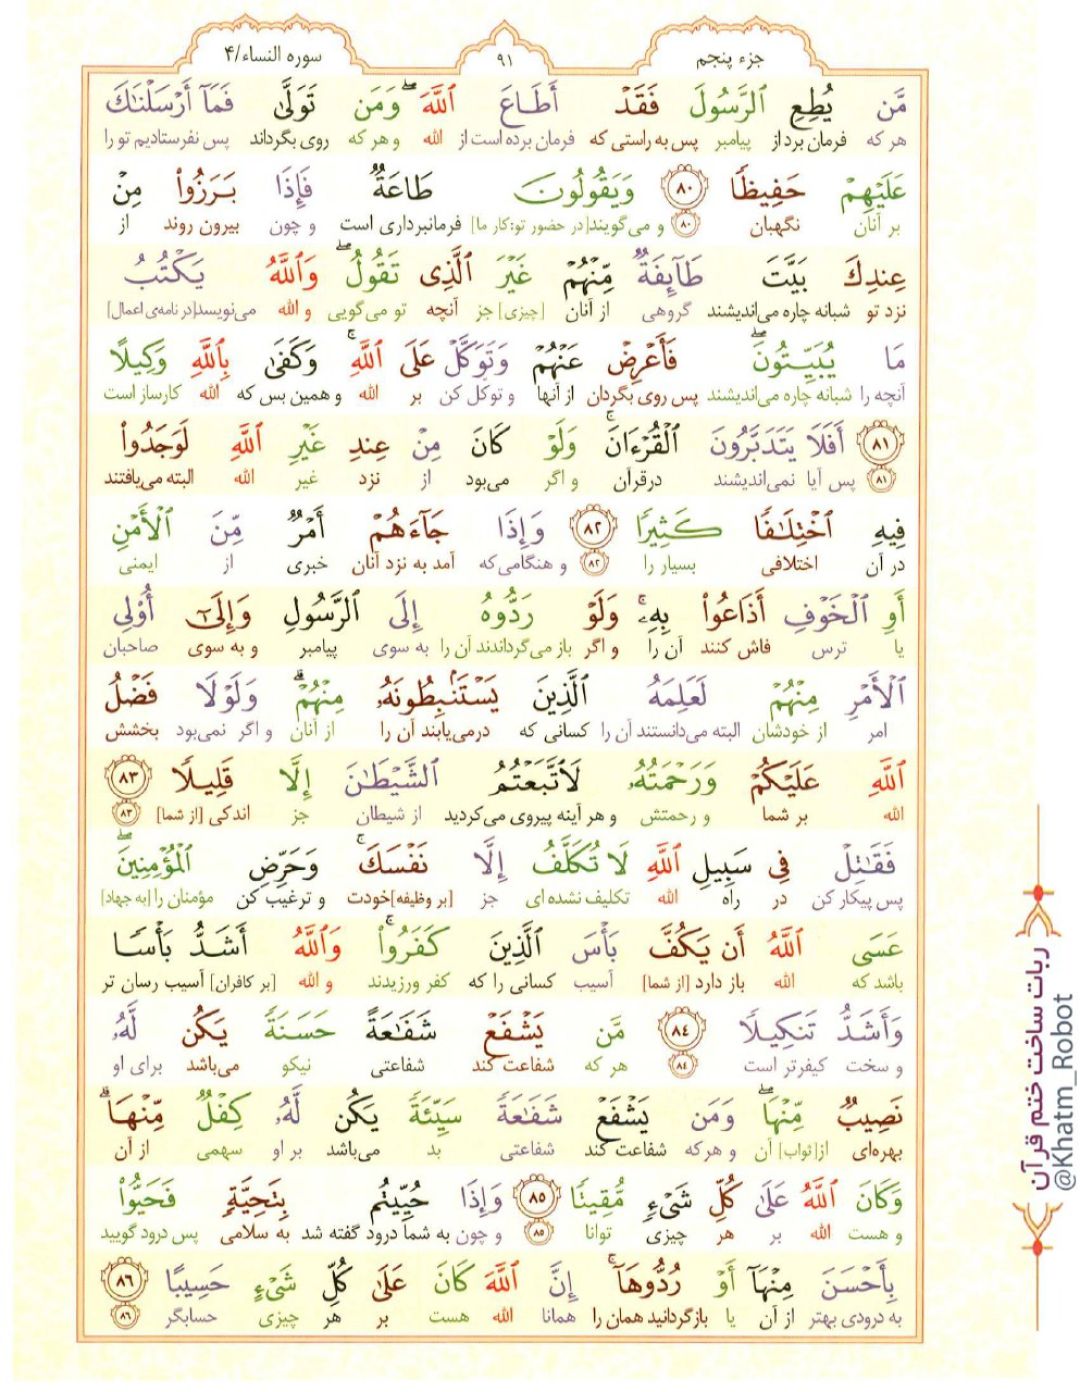 جزء پنجم
۹۱
سوره النساء/۴
مَّن يُطِعِ ٱلرَّسُولَ فَقَدْ أَطَاعَ ٱللَّهَ ۖ وَمَن تَوَلَّىٰ فَمَآ أَرْسَلْنَٰكَ
هر که فرمان برد از پیامبر پس به راستی که فرمان برده است از الله و هر که روی بگرداند پس نفرستادیم تو را
عَلَيْهِمْ حَفِيظًا ۸۰ وَيَقُولُونَ طَاعَةٌ فَإِذَا بَرَزُوا۟ مِنْ
بر آنان نگهبان ۸۰ و می‌گویند[در حضور تو:کار ما] فرمانبرداری است و چون بیرون روند از
عِندِكَ بَيَّتَ طَآئِفَةٌ مِّنْهُمْ غَيْرَ ٱلَّذِى تَقُولُ ۖ وَٱللَّهُ يَكْتُبُ
نزد تو شبانه چاره می‌اندیشند گروهی از آنان [چیزی] جز آنچه تو می‌گویی و الله می‌نویسد[در نامه‌ی اعمال]
مَا يُبَيِّتُونَ ۖ فَأَعْرِضْ عَنْهُمْ وَتَوَكَّلْ عَلَى ٱللَّهِ ۚ وَكَفَىٰ بِٱللَّهِ وَكِيلًا
آنچه را شبانه چاره می‌اندیشند پس روی بگردان از آنها و توکل کن بر الله و همین بس که الله کارساز است
۸۱ أَفَلَا يَتَدَبَّرُونَ ٱلْقُرْءَانَ ۚ وَلَوْ كَانَ مِنْ عِندِ غَيْرِ ٱللَّهِ لَوَجَدُوا۟
۸۱ پس آیا نمی‌اندیشند درقرآن و اگر می‌بود از نزد غیر الله البته می‌یافتند
فِيهِ ٱخْتِلَٰفًا كَثِيرًا ۸۲ وَإِذَا جَآءَهُمْ أَمْرٌ مِّنَ ٱلْأَمْنِ
در آن اختلافی بسیار را ۸۲ و هنگامی‌که آمد به نزد آنان خبری از ایمنی
أَوِ ٱلْخَوْفِ أَذَاعُوا۟ بِهِۦ ۖ وَلَوْ رَدُّوهُ إِلَى ٱلرَّسُولِ وَإِلَىٰٓ أُو۟لِى
یا ترس فاش کنند آن را و اگر باز می‌گرداندند آن را به سوی پیامبر و به سوی صاحبان
ٱلْأَمْرِ مِنْهُمْ لَعَلِمَهُ ٱلَّذِينَ يَسْتَنۢبِطُونَهُۥ مِنْهُمْ ۗ وَلَوْلَا فَضْلُ
امر از خودشان البته می‌دانستند آن را کسانی که درمی‌یابند آن را از آنان و اگر نمی‌بود بخشش
ٱللَّهِ عَلَيْكُمْ وَرَحْمَتُهُۥ لَٱتَّبَعْتُمُ ٱلشَّيْطَٰنَ إِلَّا قَلِيلًا ۸۳
الله بر شما و رحمتش و هر آینه پیروی می‌کردید از شیطان جز اندکی [از شما] ۸۳
فَقَٰتِلْ فِى سَبِيلِ ٱللَّهِ لَا تُكَلَّفُ إِلَّا نَفْسَكَ ۚ وَحَرِّضِ ٱلْمُؤْمِنِينَ ۖ
پس پیکار کن در راه الله تکلیف نشده ای جز [بر وظیفه]خودت و ترغیب کن مؤمنان را [به جهاد]
عَسَى ٱللَّهُ أَن يَكُفَّ بَأْسَ ٱلَّذِينَ كَفَرُوا۟ ۚ وَٱللَّهُ أَشَدُّ بَأْسًا
باشد که الله باز دارد [از شما] آسیب کسانی را که کفر ورزیدند و الله [بر کافران] آسیب رسان تر
وَأَشَدُّ تَنكِيلًا ۸۴ مَّن يَشْفَعْ شَفَٰعَةً حَسَنَةً يَكُن لَّهُۥ
و سخت کیفرتر است ۸۴ هر که شفاعت کند شفاعتی نیکو می‌باشد برای او
نَصِيبٌ مِّنْهَا ۖ وَمَن يَشْفَعْ شَفَٰعَةً سَيِّئَةً يَكُن لَّهُۥ كِفْلٌ مِّنْهَا ۗ
بهره‌ای از[ثواب] آن و هرکه شفاعت کند شفاعتی بد می‌باشد بر او سهمی از آن
وَكَانَ ٱللَّهُ عَلَىٰ كُلِّ شَىْءٍ مُّقِيتًا ۸۵ وَإِذَا حُيِّيتُم بِتَحِيَّةٍ فَحَيُّوا۟
و هست الله بر هر چیزی توانا ۸۵ و چون به شما درود گفته شد به سلامی پس درود گویید
بِأَحْسَنَ مِنْهَآ أَوْ رُدُّوهَآ ۗ إِنَّ ٱللَّهَ كَانَ عَلَىٰ كُلِّ شَىْءٍ حَسِيبًا ۸۶
به درودی بهتر از آن یا بازگردانید همان را همانا الله هست بر هر چیزی حسابگر ۸۶
ربات ساخت ختم قرآن
@Khatm_Robot